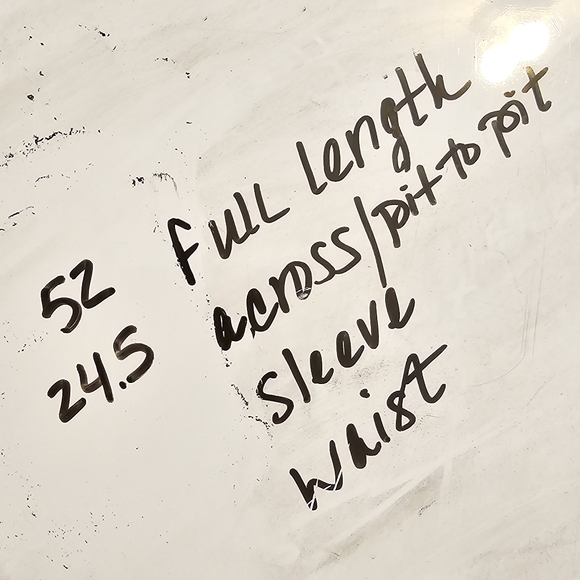 52 Full length
24.5 across/pit to pit
Sleeve
Waist